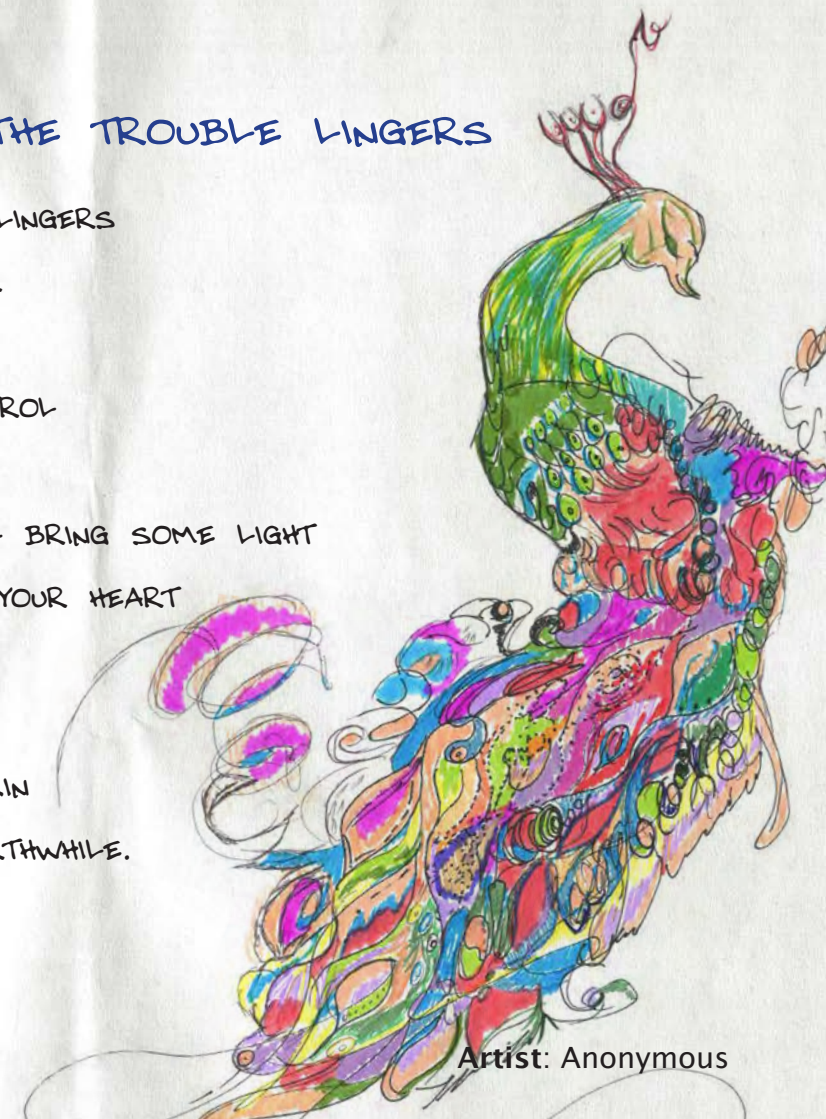 THE TROUBLE LINGERS
LINGERS
BRING SOME LIGHT
YOUR HEART
Artist: Anonymous